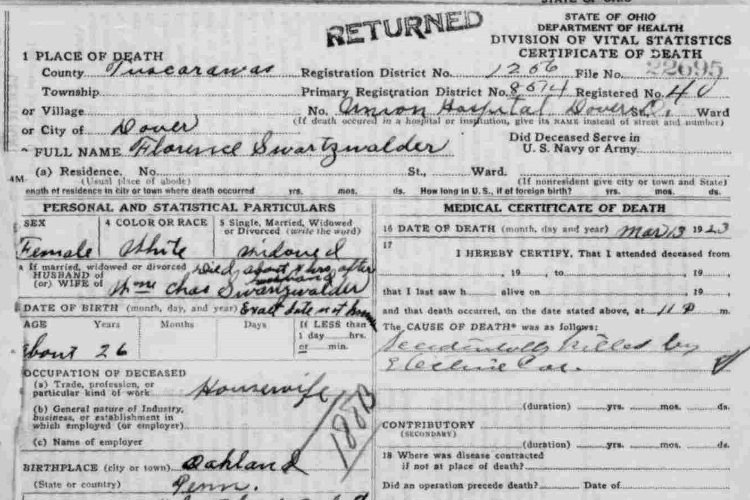 STATE OF OHIO
RETURNED
STATE OF OHIO
DEPARTMENT OF HEALTH
DIVISION OF VITAL STATISTICS
CERTIFICATE OF DEATH
1 PLACE OF DEATH
County Tuscarawas Registration District No. 1266 File No. 22695
Township Primary Registration District No. 8574 Registered No. 40
or Village No. Union Hospital Dover O. St., Ward
(If death occured in a hospital or insitution, give its NAME instead of street and number)
or City of Dover
Did Deceased Serve in
U. S. Navy or Army
FULL NAME Florence Swartzwalder
(a) Residence. No. St., Ward.
(Usual place of abode) (If nonresident give city or town and State)
4M
ength of residence in city or town where death occurred yrs. mos. ds. How long in U. S., if of foreign birth? yrs. mos. ds.
PERSONAL AND STATISTICAL PARTICULARS
SEX 4 COLOR OR RACE 5 Single, Married, Widowed
or Divorced (write the word)
Female White Widowed
a If married, widowed or divorced Died about hrs after
HUSBAND of husband
(or) WIFE of Chas Swartzwalder
DATE OF BIRTH (month, day, and year) Exact date not known
AGE Years Months Days If LESS than
1 day hrs.
or min.
about 26
OCCUPATION OF DECEASED
(a) Trade, profession, or
particular kind of work Housewife
(b) General nature of Industry,
business, or establishment in
which employed (or employer)
(c) Name of employer
188B
BIRTHPLACE (city or town) Oakland
(State or country) Penn.
MEDICAL CERTIFICATE OF DEATH
16 DATE OF DEATH (month, day and year) Mar 13 1923
17
I HEREBY CERTIFY, That I attended deceased from
, 19 , to , 19
that I last saw h alive on , 19
and that death occurred, on the date stated above, at 11 P m.
The CAUSE OF DEATH* was as follows:
Accidentally killed by
Electric Car.
(duration) yrs. mos. ds.
CONTRIBUTORY
(SECONDARY)
(duration) yrs. mos. ds.
18 Where was disease contracted
if not at place of death?
Did an operation precede death? Date of